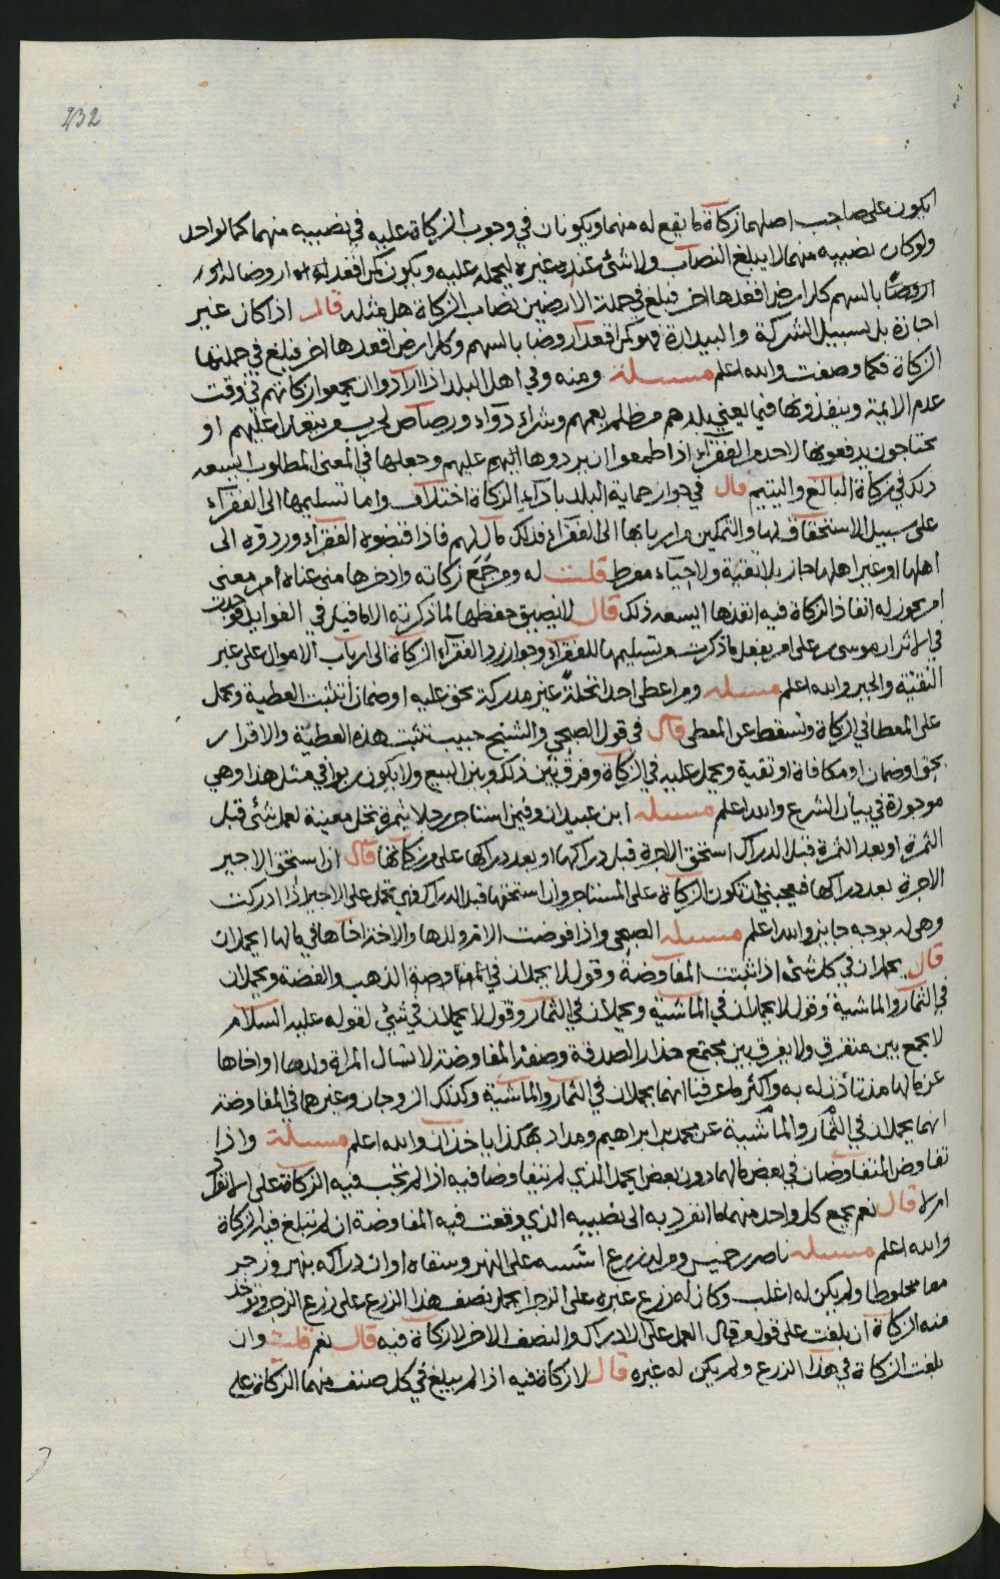 432
ايكون على صاحب اصلهما زكاة ما يقع له منهما ويكونان في وجوب الزكاة عليه في نصيبه منهما كمال واحد
ولو كان نصيبه منهما لا يبلغ النصاب ولا شئ عنده غيره ليحمله عليه ويكون كمن اقعد له ارضا له
ارضا بالسهم كان ارض اقعدها اخر فبلغ في جملة الارضين نصاب الزكاة هل مثله قال اذا كان غير
اجازة بل بسبيل الشركة والبيدارة فهو كمن اقعد ارضا بالسهم وكان ارض اقعدها اخر فبلغ في جملتها
الزكاة فكما وصفت والله اعلم مسئلة ومنه وفي اهل البلد اذا ارادوا ان يجمعوا زكاتهم في وقت
عدم الايمة وينفذونها فيما يعني بلدهم من ظلم يعمهم وشراء دواء ورصاص لحرب من يتعدا عليهم او
يحتاجون يدفعونها لاحد من الفقراء اذا طمعوا ان يردوها اليهم عليهم وجعلها في المعنى المطلوب ايسعه
ذلك في زكاة البالغ واليتيم قال في جواز حماية البلد باداء الزكاة اختلاف واما تسليمها الى الفقراء
على سبيل الاستحقاق لها والتمكين من اربابها الى الفقراء فذلك مال لهم فاذا قبضوه الفقراء وردوه الى
اهلها او غير اهلها جاز بلا تقية ولا حياء مفرط قلت له ومن جمع زكاته وادخرها متى عناه امر معنى
امر يجوز له انفاذ الزكاة فيه انفذها ايسعه ذلك قال لا يضيق حفظها لما ذكرته الا ما قيل في الفوايد فوجدت
في الاثر ان موسى بن علي امر بفعل ما ذكرت من تسليمها للفقراء وجواز رد الفقراء الزكاة الى ارباب الاموال على غير
التقية والجبر والله اعلم مسئلة ومن اعطى احدا نخلة غير مدركة بحق عليه او ضمان أتثبت العطية وتحمل
على المعطا في الزكاة وتسقط عن المعطي قال في قول الصبحي والشيخ حبيب تثبت هذه العطية والاقرار
بحق او ضمان او مكافاة او تقية ويحمل عليه في الزكاة وفرق بين ذلك وبين البيع ولا يكون ربوا في مثل هذا وهي
موجودة في بيان الشرع والله اعلم مسئلة ابن عبيدان وفيمن استاجر رجلا بثمرة نخل معينة لعمل شئ قبل
الثمرة او بعد الثمرة قبل الدراك استحق الاجرة قبل دراكها او بعد دراكها على من زكاتها قال ان استحق الاجير
الاجرة بعد دراكها فيعجبني ان تكون الزكاة على المستاجر وان استحقها قبل الدراك فهي تحمل على الاجير اذا ادركت
وهي له بوجه جايز والله اعلم مسئلة الصبحي واذا فوضت الام ولدها والاخت اخاها في مالها ايحملان
قال يحملان في كل شئ اذا ثبتت المفاوضة وقول لا يحملان في مفاوضة الذهب والفضة ويحملان
في الثمار والماشية وقول لا يحملان في الماشية ويحملان في الثمار وقول لا يحملان في شئ لقوله عليه السلام
لا يجمع بين متفرق ولا يفرق بين مجتمع حذار الصدقة وصفة المفاوضة لا تسال المراة ولدها او اخاها
عن مالها مذ تاذن له به واكثر ما عرفنا انهما يحملان في الثمار والماشية وكذلك الزوجان وغيرهما في المفاوضة
انهما يحملان في الثمار والماشية عن محمد بن ابراهيم ومداد بهكذا ياخذان والله اعلم مسئلة واذا
تفاوض المتفاوضان في بعض مالهما دون بعض ايحمل الذي لم يتفاوضا فيه اذا لم تجب فيه الزكاة على الانفراد
ام لا قال نعم يجمع كل واحد منهما ما انفرد به الى نصيبه الذي وقعت فيه المفاوضة ان لم تبلغ فيه الزكاة
والله اعلم مسئلة ناصر بن خميس ومن له زرع اسسه على النهر وسقاه اوان دراكه بنهر وزجر
معا مخلوطا ولم يكن له اغلب وكان له زرع غيره على الزجر ايحمل نصف هذا الزرع على زرع الزجر وتؤخذ
منه الزكاة ان بلغت على قول من قال العمل على الادراك والنصف الاخر لا زكاة فيه قال نعم قلت وان
بلغت الزكاة في هذا الزرع ولم يكن له غيره قال لا زكاة فيه اذا لم يبلغ في كل صنف منهما الزكاة على